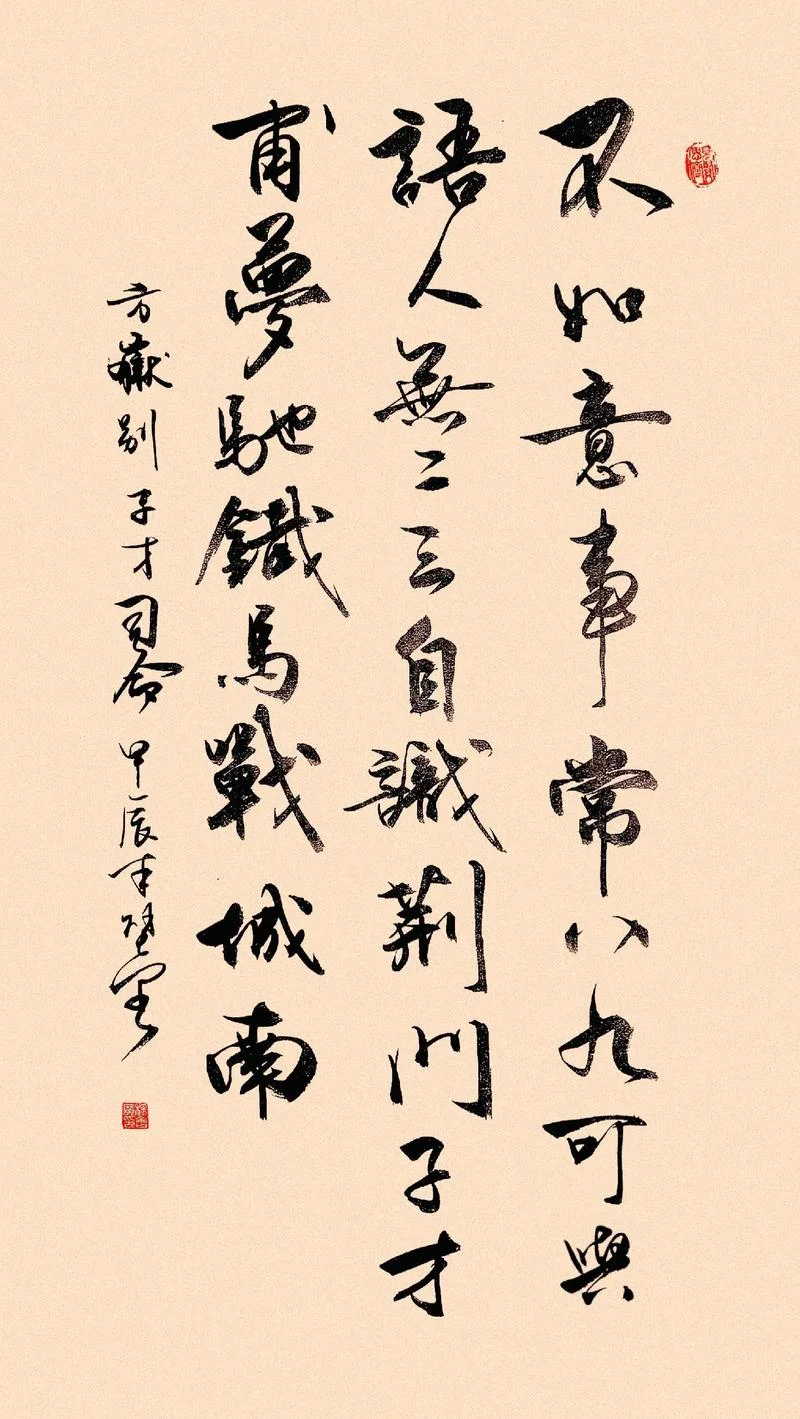 不如意事常八九可與
語人無二三自識荆門子才
甫夢馳鐵馬戰城南
方嶽別子才司令甲辰年